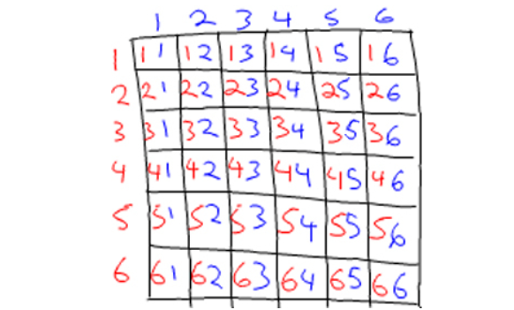 1 2 3 4 5 6
1 11 12 13 14 15 16
2 21 22 23 24 25 26
3 31 32 33 34 35 36
4 41 42 43 44 45 46
5 51 52 53 54 55 56
6 61 62 63 64 65 66